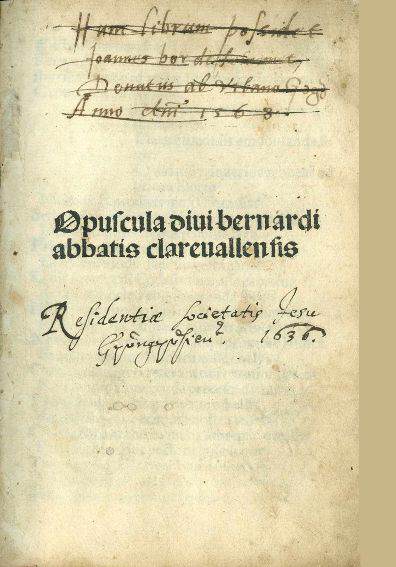 Hunc librum possidet
Joannes
Donatus ab Urbano
Anno dni 1568
Opuscula diui bernardi
abbatis clareuallensis
Residentiæ Societatis Jesu
Gyöngyösien. 1636.